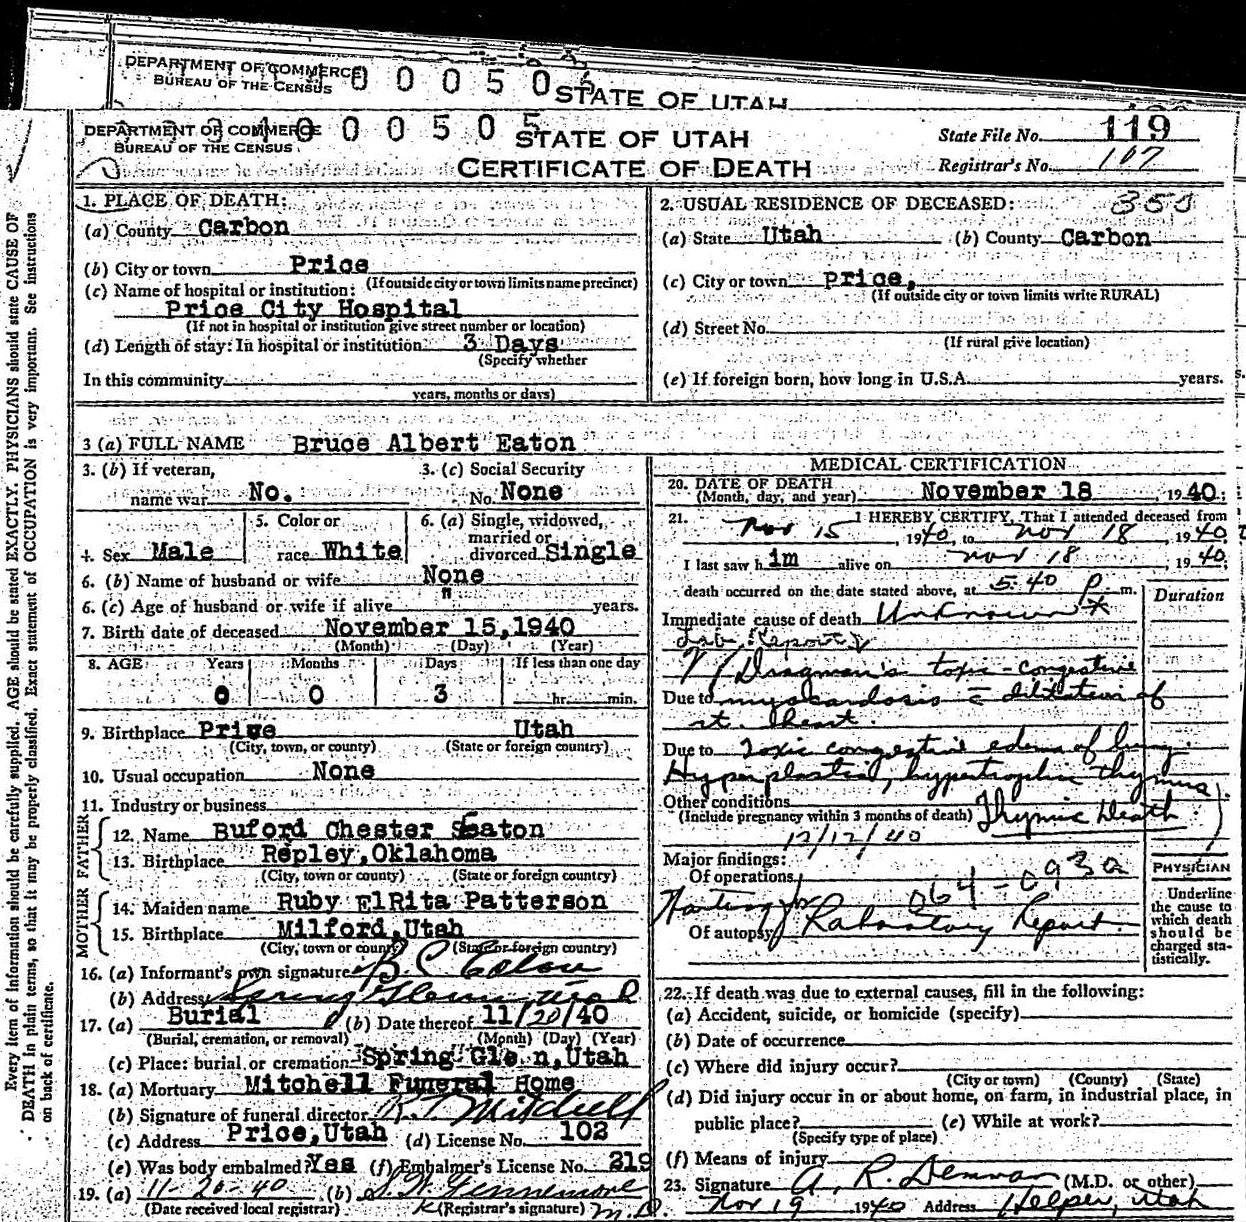 DEPARTMENT OF COMMERCE
BUREAU OF THE CENSUS
STATE OF UTAH
DEPARTMENT OF COMMERCE
BUREAU OF THE CENSUS
STATE OF UTAH
CERTIFICATE OF DEATH
State File No. 119
Registrar's No. 107
1. PLACE OF DEATH:
(a) County Carbon
(b) City or town Price
(If outside city or town limits name precinct)
(c) Name of hospital or institution:
Price City Hospital
(If not in hospital or institution give street number or location)
(d) Length of stay: In hospital or institution 3 Days
(Specify whether
In this community
years, months or days)
2. USUAL RESIDENCE OF DECEASED:
(a) State Utah (b) County Carbon
(c) City or town Price,
(If outside city or town limits write RURAL)
(d) Street No.
(If rural give location)
(e) If foreign born, how long in U.S.A. years.
3 (a) FULL NAME Bruce Albert Eaton
3. (b) If veteran, name war No.
3. (c) Social Security No. None
4. Sex Male
5. Color or race White
6. (a) Single, widowed, married or divorced Single
6. (b) Name of husband or wife None
6. (c) Age of husband or wife if alive " years.
7. Birth date of deceased November 15, 1940
(Month) (Day) (Year)
8. AGE Years Months Days If less than one day
0 0 3 hr. min.
9. Birthplace Price Utah
(City, town, or county) (State or foreign country)
10. Usual occupation None
11. Industry or business
FATHER
12. Name Buford Chester Eaton
13. Birthplace Repley, Oklahoma
(City, town or county) (State or foreign country)
MOTHER
14. Maiden name Ruby ElRita Patterson
15. Birthplace Milford, Utah
(City, town or county) (State or foreign country)
16. (a) Informant's own signature B. C. Eaton
(b) Address Spring Glenn, Utah
17. (a) Burial (b) Date thereof 11/20/40
(Burial, cremation, or removal) (Month) (Day) (Year)
(c) Place: burial or cremation Spring Glen, Utah
18. (a) Mortuary Mitchell Funeral Home
(b) Signature of funeral director R. T. Mitchell
(c) Address Price, Utah (d) License No. 102
(e) Was body embalmed? Yes (f) Embalmer's License No. 219
19. (a) 11-20-40 (b)
(Date received local registrar) (Registrar's signature) M.D.
MEDICAL CERTIFICATION
20. DATE OF DEATH
(Month, day, and year) November 18 1940;
21. I HEREBY CERTIFY, That I attended deceased from
Nov 15, 1940, to Nov 18, 1940,
I last saw him alive on Nov 18, 1940;
death occurred on the date stated above, at 5:40 P. m.
Duration
Immediate cause of death Unknown *
Lab. Report
toxic-congestive
Due to myocardosis c̄ dilitation of
rt. heart.
Due to Toxic congestive edema of lung.
Hyperplastic, hypertrophic thymus)
Other conditions
(Include pregnancy within 3 months of death) Thymic Death
12/12/40
Major findings:
Of operations
064-093a
Waiting for
Of autopsy Laboratory Report.
PHYSICIAN
Underline the cause to which death should be charged statistically.
22. If death was due to external causes, fill in the following:
(a) Accident, suicide, or homicide (specify)
(b) Date of occurrence
(c) Where did injury occur?
(City or town) (County) (State)
(d) Did injury occur in or about home, on farm, in industrial place, in
public place? (e) While at work?
(Specify type of place)
(f) Means of injury
23. Signature A. R. Demman (M.D. or other)
Nov 19 1940 Address Helper, Utah
Every item of information should be carefully supplied. AGE should be stated EXACTLY. PHYSICIANS should state CAUSE OF
DEATH in plain terms, so that it may be properly classified. Exact statement of OCCUPATION is very important. See instructions
on back of certificate.